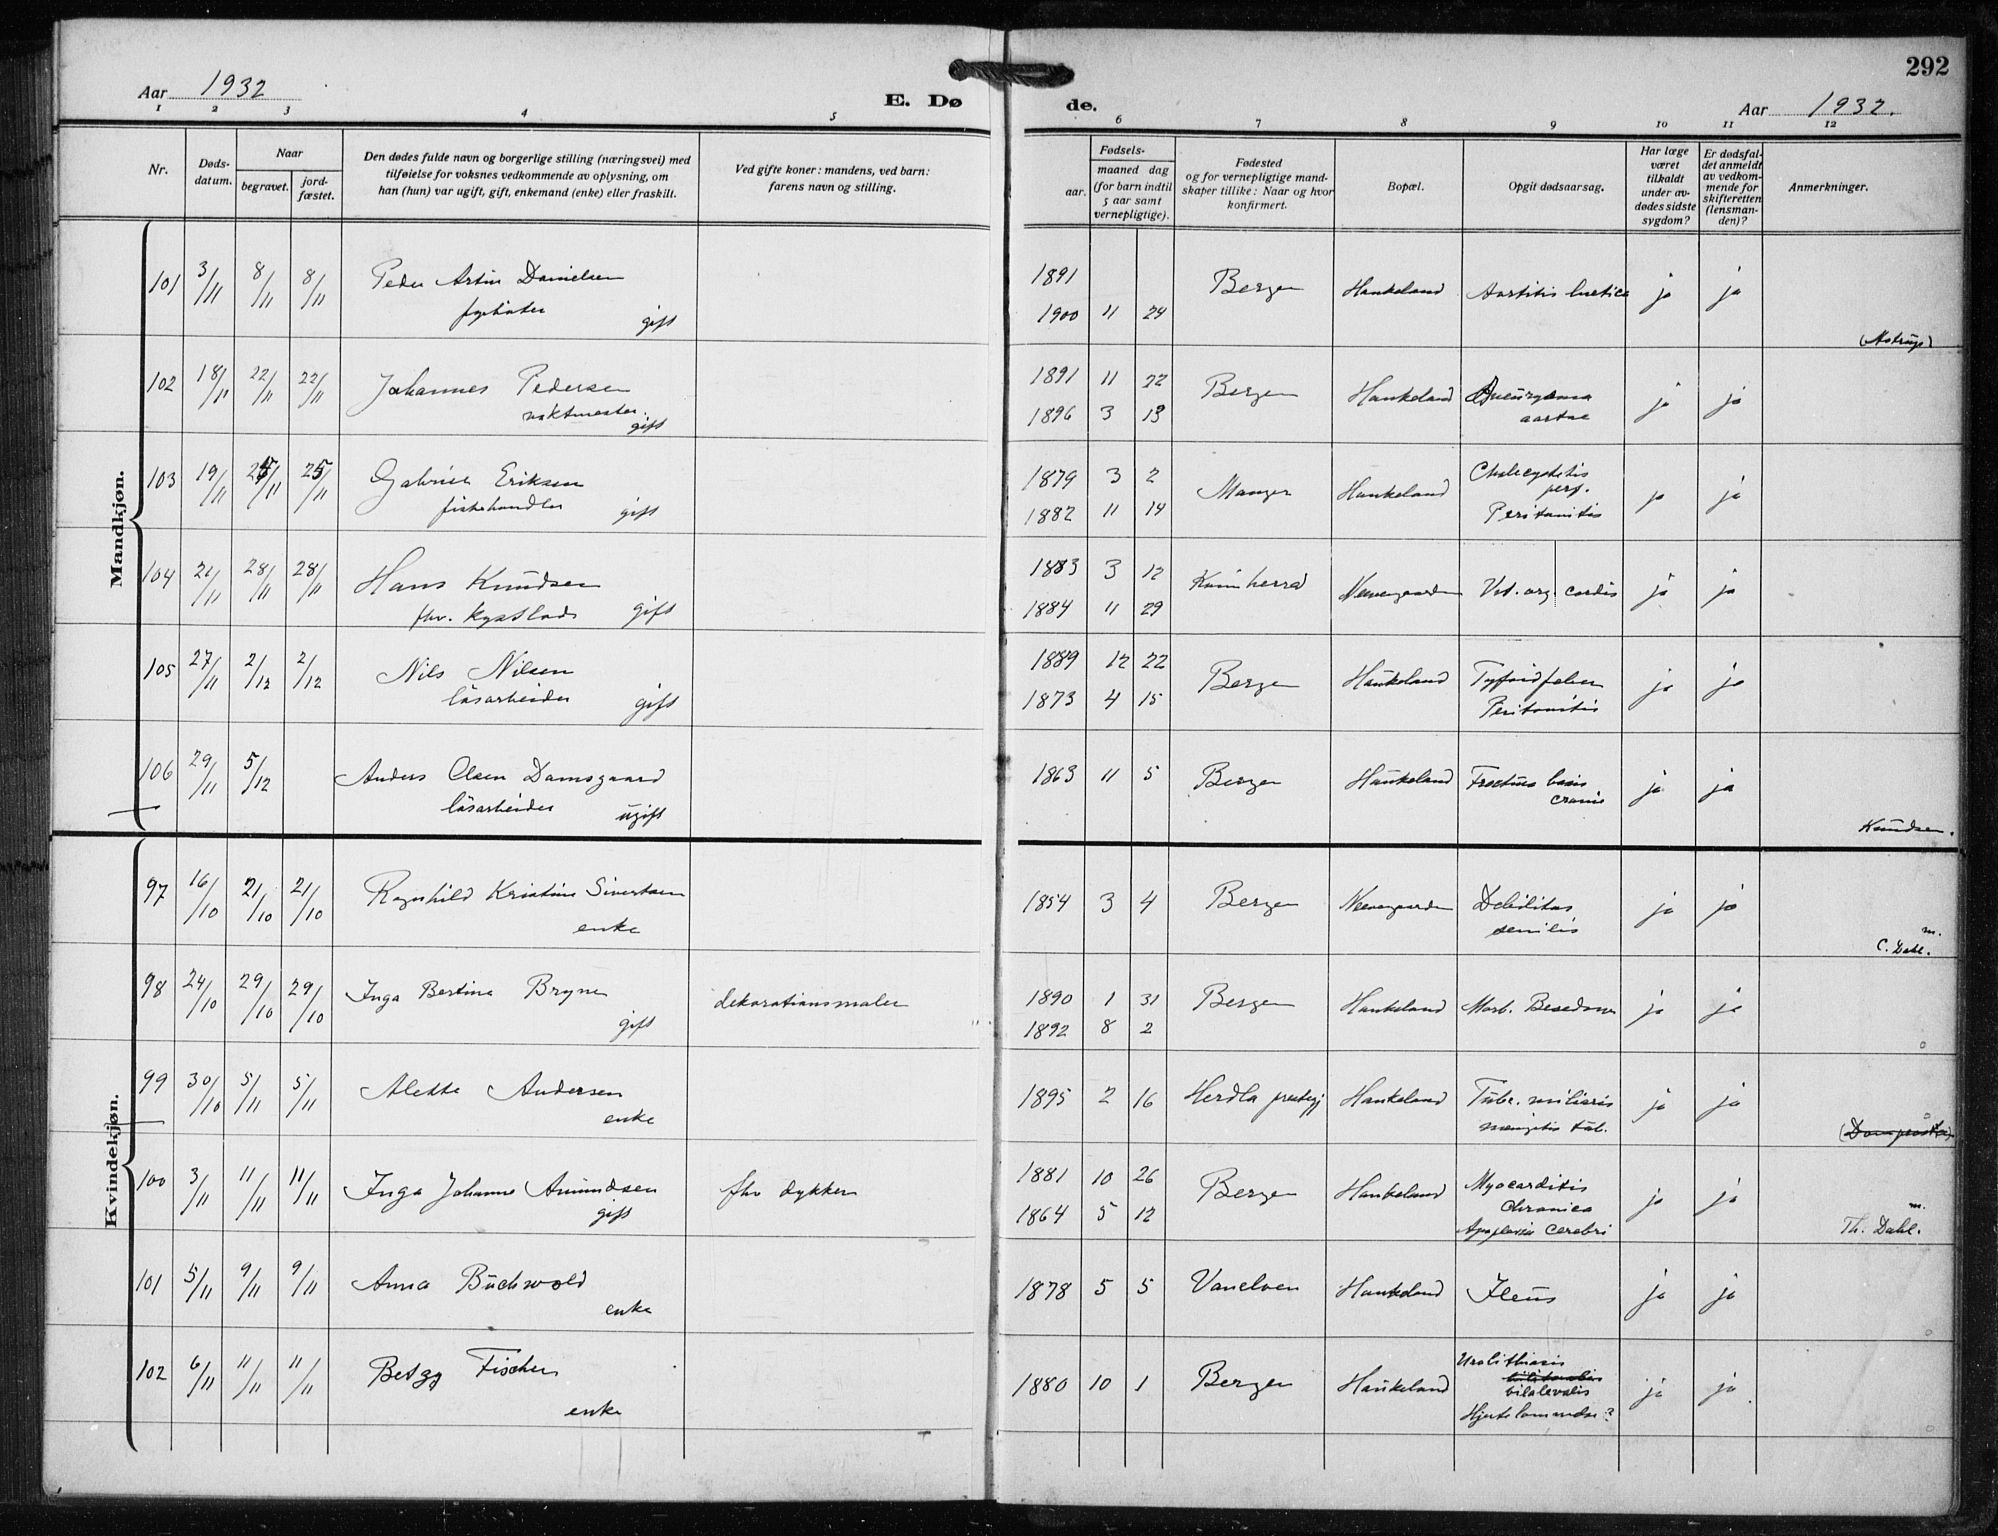 292
Aar 1932
E. Dø de.
Aar 1932.
1 2 3 4 5 6 7 8 9 10 11 12
Nr.
Døds-
datum.
Naar
begravet.
jord-
fæstet.
Den dødes fulde navn og borgerlige stilling (næringsvei) med
tilføielse for voksnes vedkommende av oplysning, om
han (hun) var ugift, gift, enkemand (enke) eller fraskilt.
Ved gifte koner: mandens, ved barn:
farens navn og stilling.
Fødsels-
aar.
maaned dag
(for barn indtil
5 aar samt
vernepligtige).
Fødested
og for vernepligtige mand-
skaper tillike: Naar og hvor
konfirmert.
Bopæl.
Opgit dødsaarsag.
Har læge
været
tilkaldt
under av-
dødes sidste
sygdom?
Er dødsfal-
det anmeldt
av vedkom-
mende for
skifteretten
(lensman-
den)?
Anmerkninger.
Mandkjøn.
101 3/11 8/11 8/11 Peder Artur Danielsen gift 1891 Bergen Haukeland Aortitis luetica ja ja
1900 11 24
(Astrup)
102 18/11 22/11 22/11 Johannes Pedersen 1891 11 22 Bergen Haukeland Aneurysma ja ja
vaktmester. gift 1896 3 13 aortae
103 19/11 25/11 25/11 Gabriel Eriksen 1879 3 2 Manger Haukeland Cholecystitis ja ja
perf.
fiskehandler gift 1882 11 14 Peritonitis
104 21/11 28/11 28/11 Hans Knudsen 1883 3 12 Kvinherrad Neevengaarden Vit. org. cordis ja ja
fhv. kystlods gift 1884 11 29
105 27/11 2/12 2/12 Nils Nilsen 1889 12 22 Bergen Haukeland Tyfoidfeber ja ja
løsarbeider gift 1873 4 15 Peritonitis
106 29/11 5/12 Anders Olsen Damsgaard 1863 11 5 Bergen Haukeland Fractura basis ja ja
løsarbeider ugift cranii
Knudsen.
Kvindekjøn.
97 16/10 21/10 21/10 Ragnhild Kristine Sivertsen 1854 3 4 Bergen Neevengaarden Debilitas ja ja
enke senilis
m.
C. Dahl.
98 24/10 29/10 29/10 Inga Bertine Bryne dekorationsmaler 1890 1 31 Bergen Haukeland Morb. Basedow ja ja
gift 1892 8 2
99 30/10 5/11 5/11 Alette Andersen 1895 2 16 Herdla prestegj Haukeland Tub. miliaris ja ja
enke mengitis tub.
100 3/11 11/11 11/11 Inga Johanne Amundsen fhv dykker 1881 10 26 Bergen Haukeland Myocarditis ja ja
gift 1864 5 12 chronica
Apoplexia cerebri
m.
Th. Dahl.
101 5/11 9/11 9/11 Anna Buchwold 1878 5 5 Vanelven Haukeland Ileus ja ja
enke
102 6/11 11/11 11/11 Betzy Fischer 1880 10 1 Bergen Haukeland Urolithiasis ja ja
enke